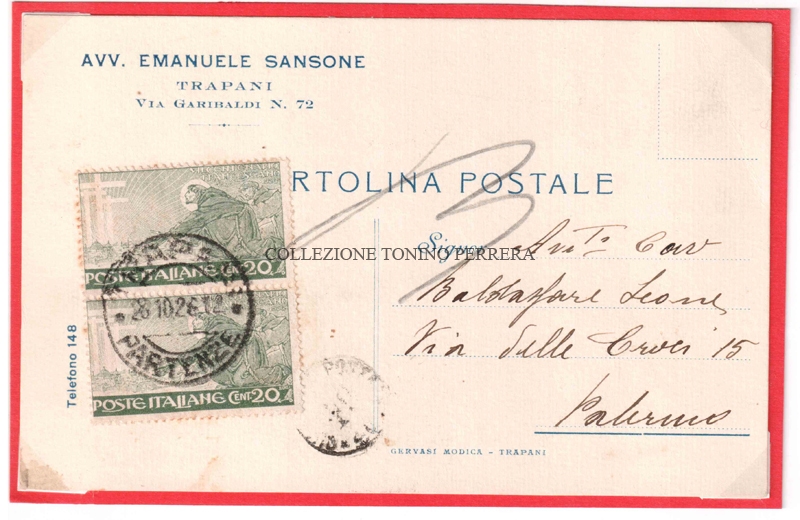 AVV. EMANUELE SANSONE
TRAPANI
VIA GARIBALDI N. 72
RTOLINA POSTALE
COLLEZIONE TONINO PERRERA
POSTE ITALIANE CENT. 20
26 10 26 12
PARTENZE
POSTE ITALIANE CENT. 20
Telefono 148
Signor
Cav
Baldassare Leone
Via delle Croci 15
Palermo
GERVASI MODICA - TRAPANI